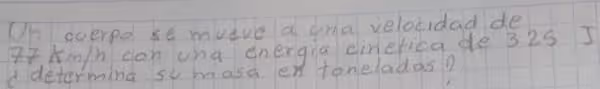 Un cuerpo se mueve a una velocidad de
77 Km/h con una energia cinetica de 325 J
¿ determina su masa en toneladas?